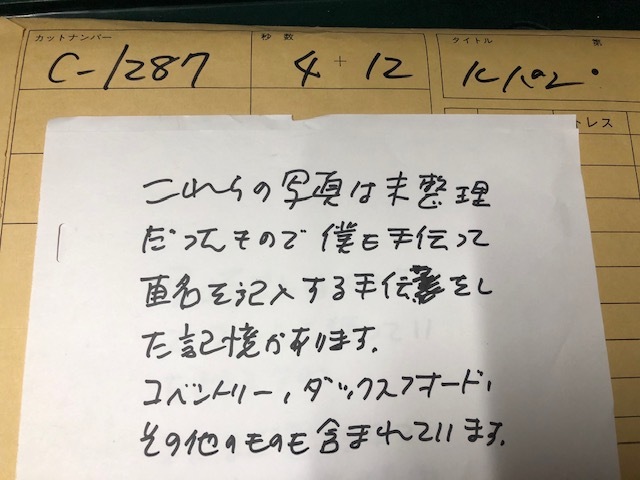 カットナンバー
C-1287
秒数
4+12
タイトル 第
トレス
これらの写真は未整理
だったもので僕も手伝って
直名を記入する手伝をし
た記憶があります.
コベントリー,ダックスフォード,
その他のものも含まれています.